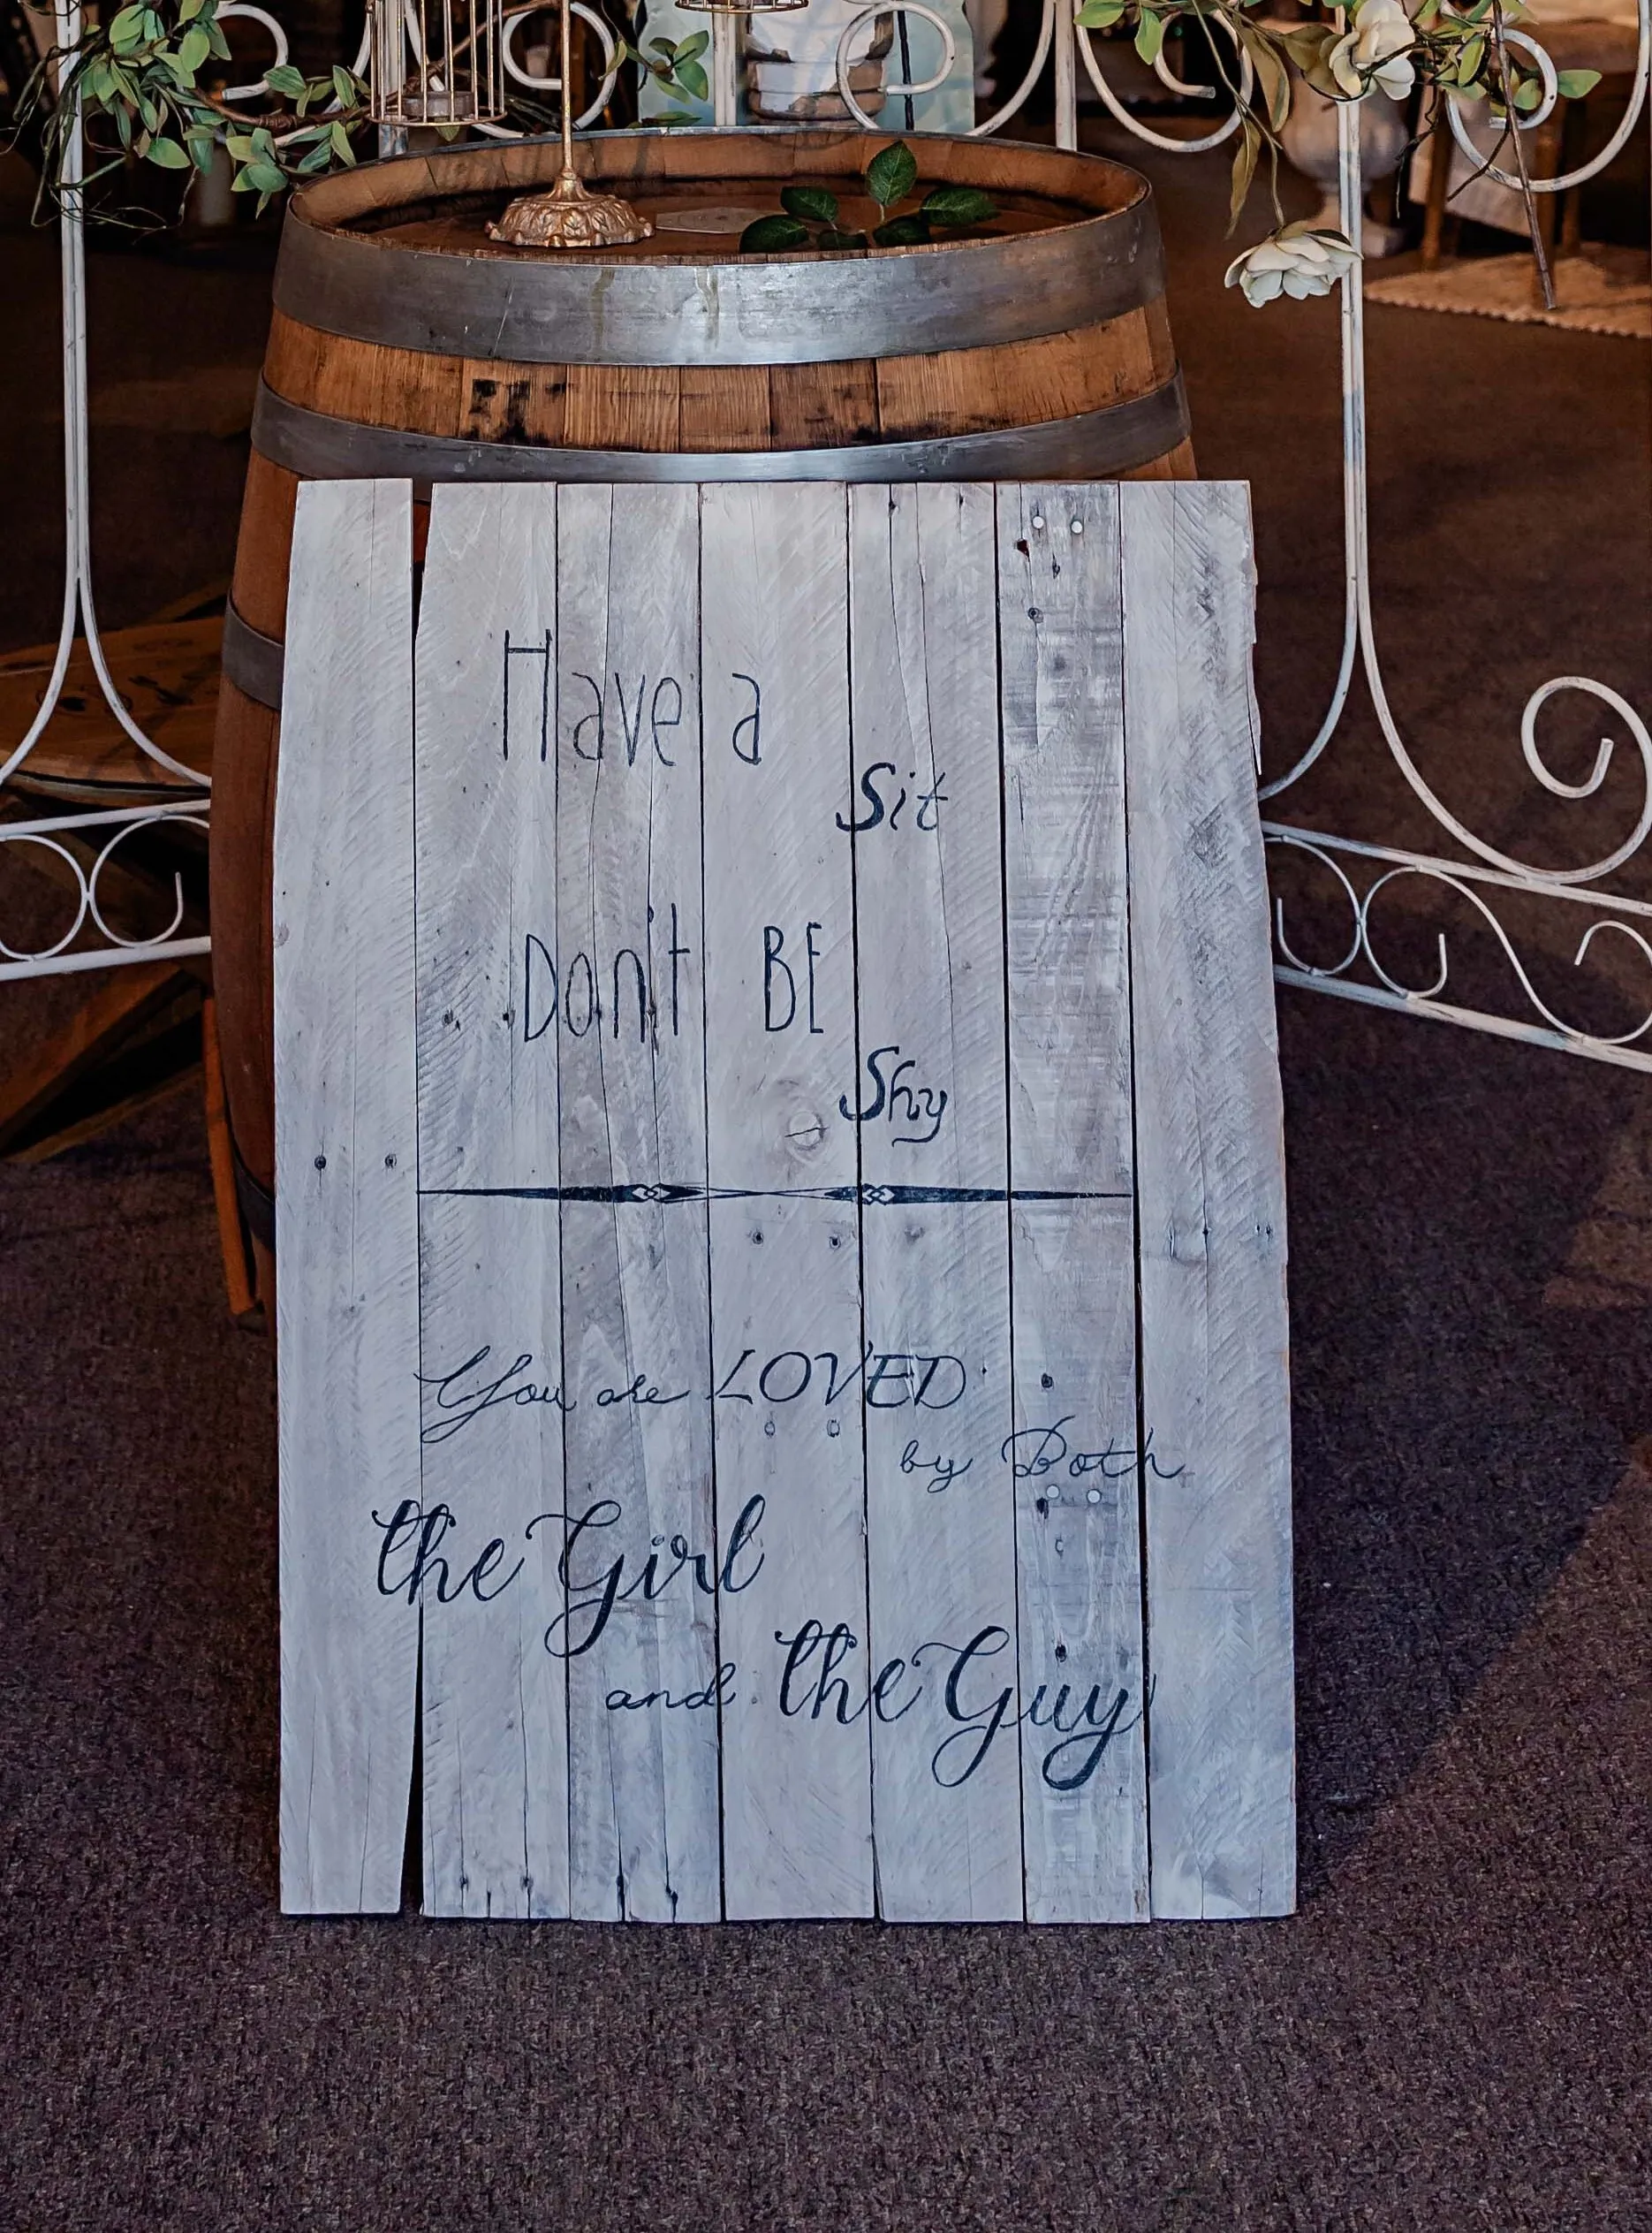 Have a
Sit
Don't BE
Shy
You are LOVED
by Both
the Girl
and the Guy